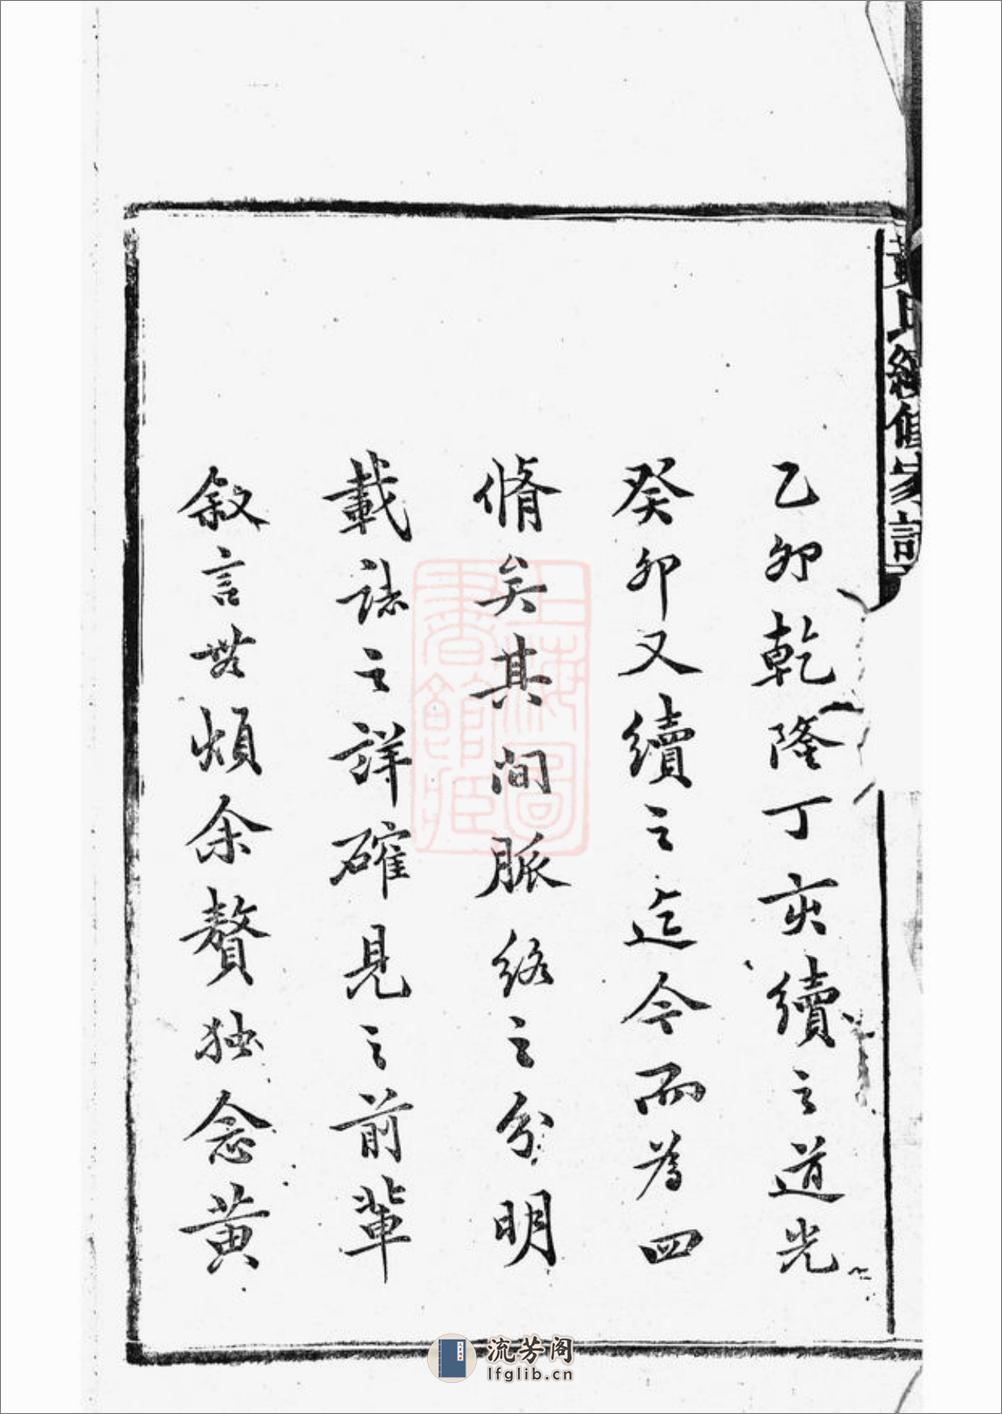 黃氏續修家記
乙卯乾隆丁亥續之道光
癸卯又續之迄今而為四
脩矣其間脈絡之分明
載誌之詳確見之前輩
叙言無煩余贅独念黄
上海圖書館藏
流芳阁
lfglib.cn